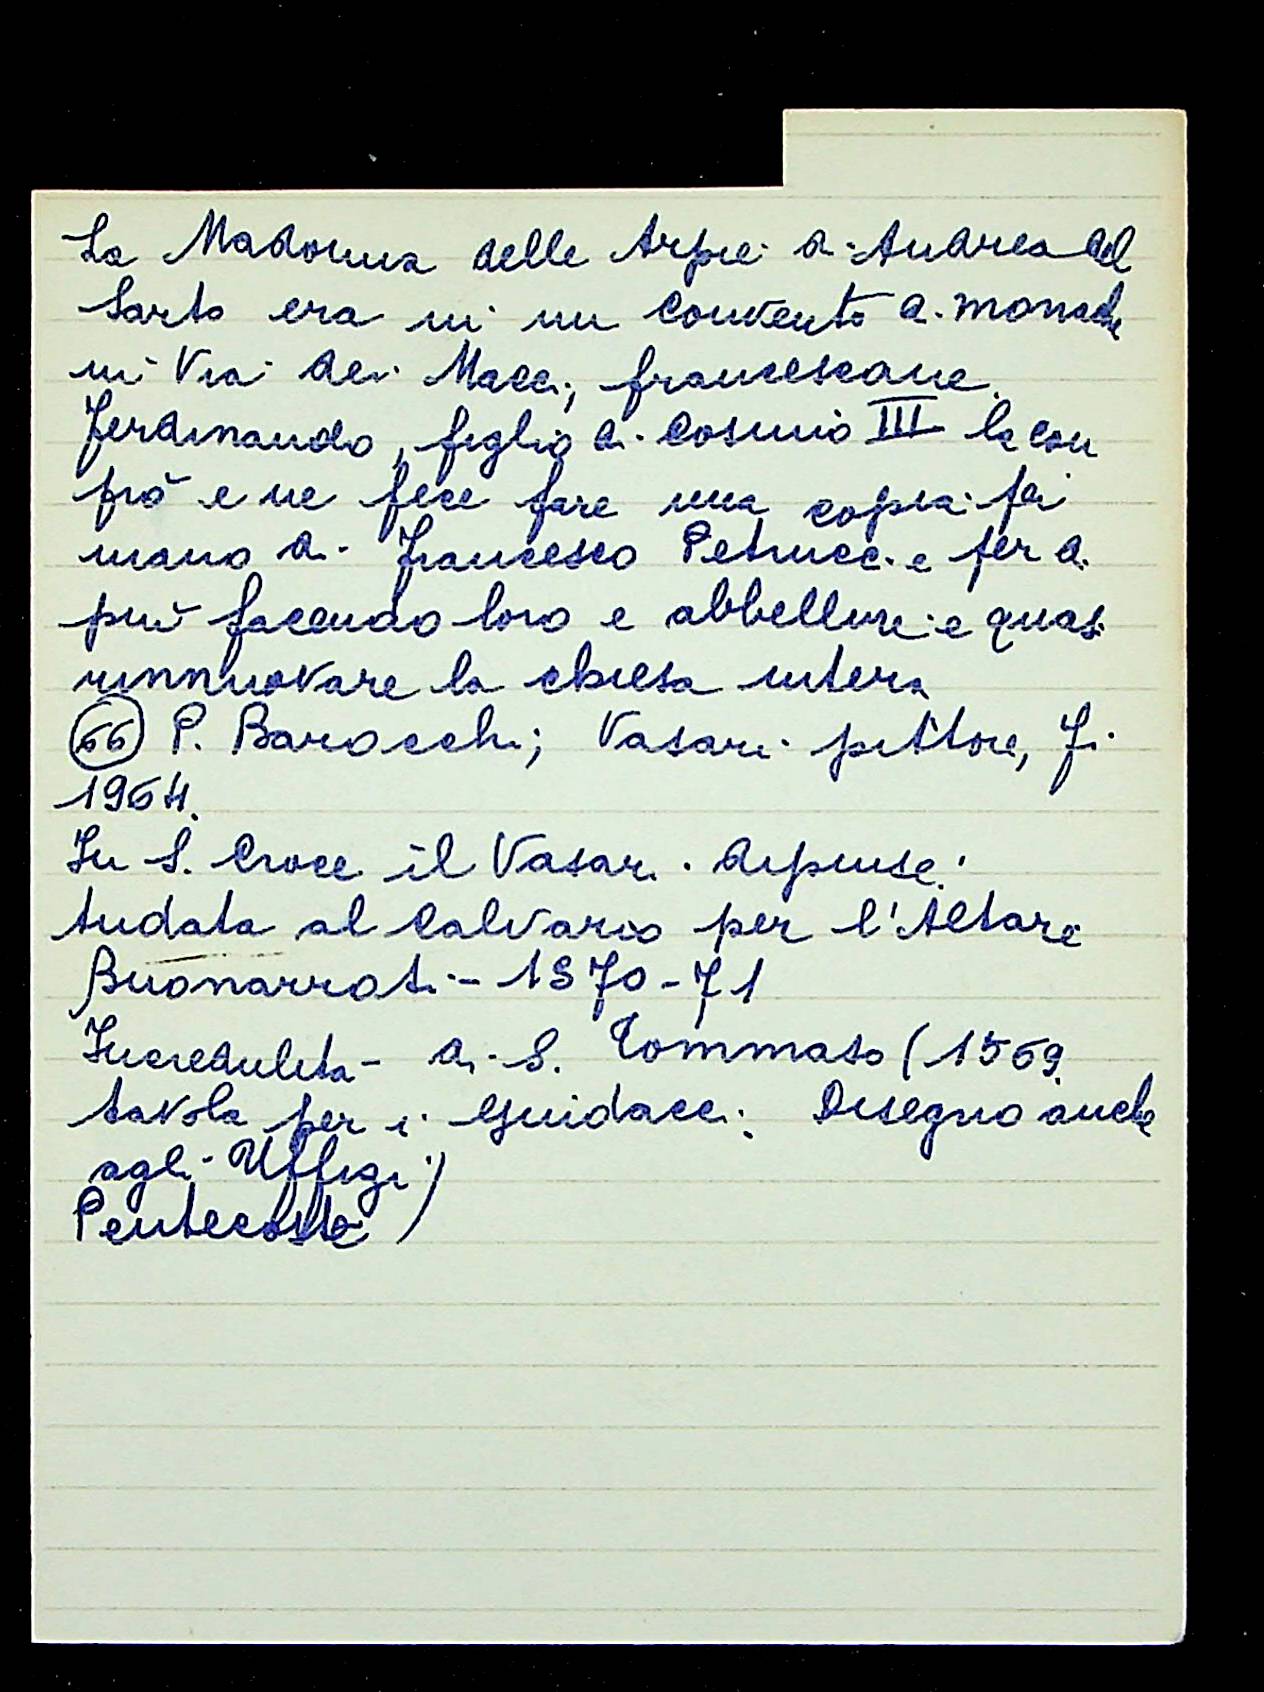 La Madonna delle Arpie di Andrea del
Sarto era in un convento di monache
in Via dei Macci, francescane.
Ferdinando, figlio di Cosimo III la com
prò e ne fece fare una copia per
mano di Francesco Petrucci e per di
più facendo loro e abbellire e quasi
rinnuovare la chiesa intera
66 P. Barocchi; Vasari pittore, Fi.
1964.
In S. Croce il Vasari dipinse:
Andata al Calvario per l'Altare
Buonarroti - 1570-71
Incredulità di S. Tommaso (1569.
tavola per i Guidacci. Disegno anche
agli Uffizi)
Pentecoste